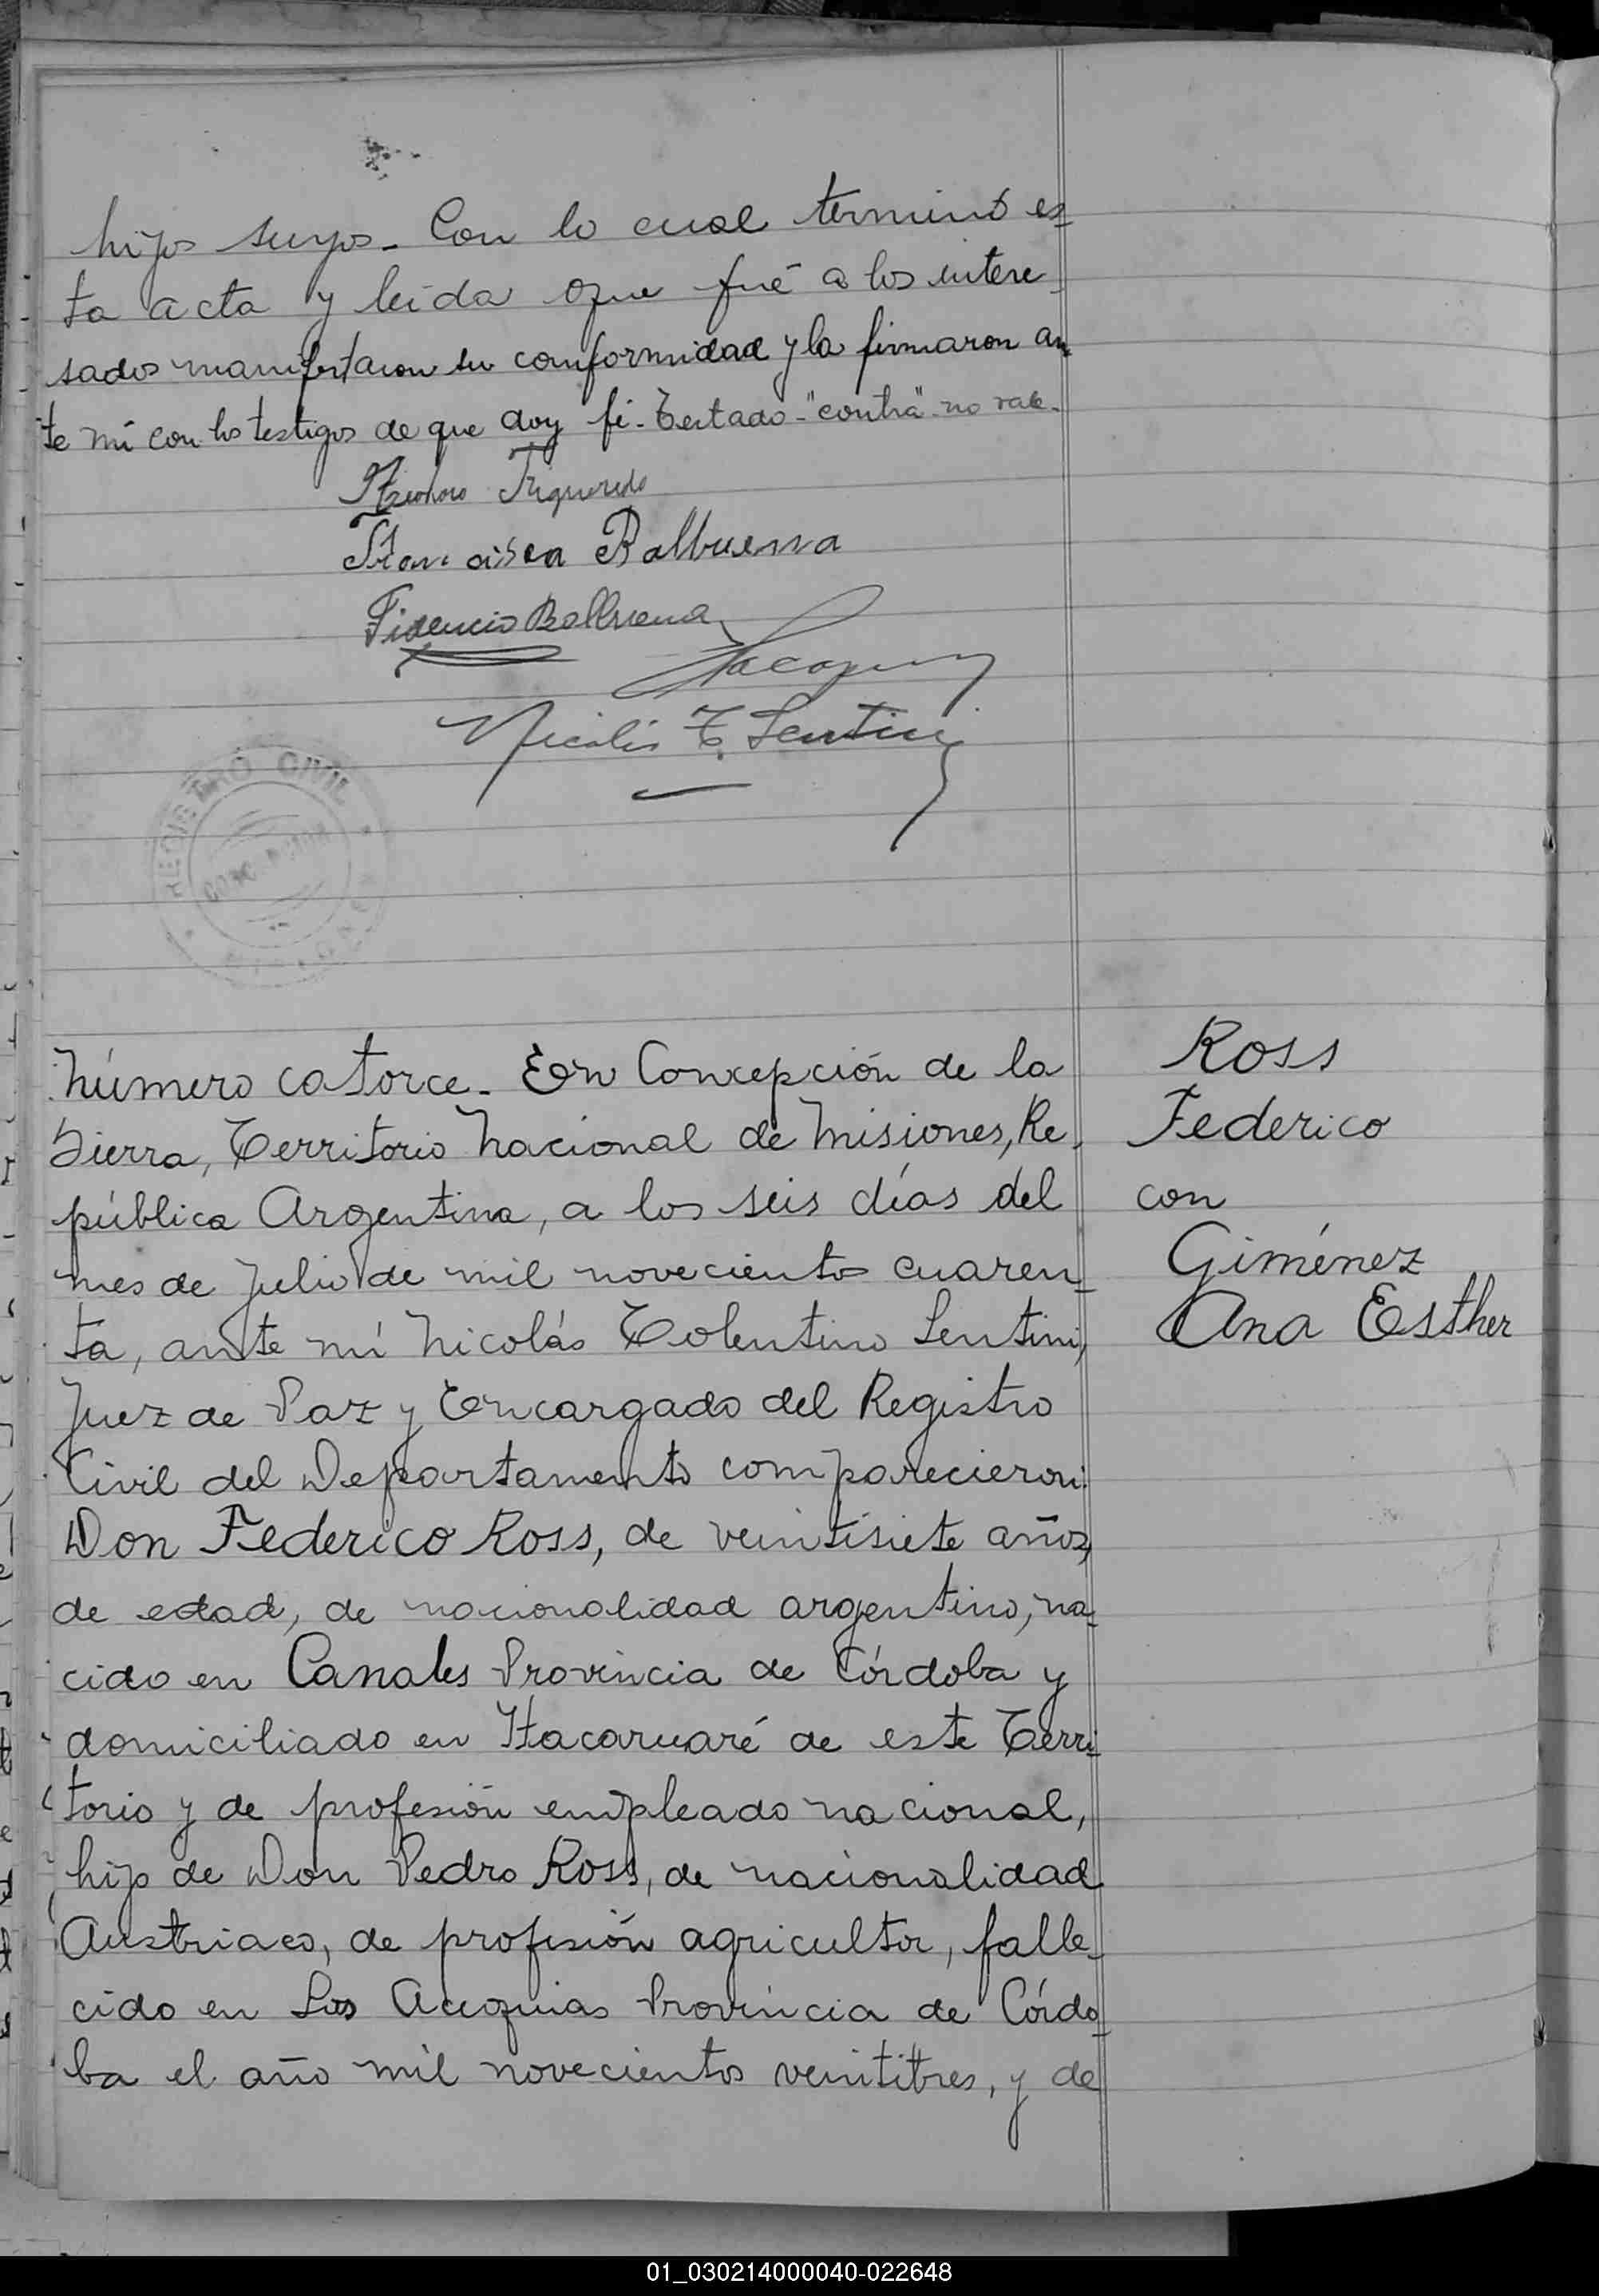 hijos suyos - Con lo cual terminó es-
ta acta y leída que fué a los intere-
sados manifestaron su conformidad y la firmaron an-
te mí con los testigos de que doy fé - Testado - "contra" no vale -
Figueredo
Francisca Balbuena
Fidencio Balbuena
Nicolás T. Sentini
REGISTRO CIVIL
Número catorce - En Concepción de la
Sierra, Territorio Nacional de Misiones, Re-
pública Argentina, a los seis días del
mes de Julio de mil novecientos cuaren-
ta, ante mí Nicolás Tolentino Sentini,
Juez de Paz y Encargado del Registro
Civil del Departamento comparecieron:
Don Federico Ross, de veintisiete años,
de edad, de nacionalidad argentino, na-
cido en Canales Provincia de Córdoba y
domiciliado en Itacaruaré de este Terri-
torio y de profesión empleado nacional,
hijo de Don Pedro Ross, de nacionalidad
Austriaco, de profesión agricultor, falle-
cido en Las Acequias Provincia de Córdo-
ba el año mil novecientos veintitres, y de
Ross
Federico
con
Giménez
Ana Esther
01_030214000040-022648